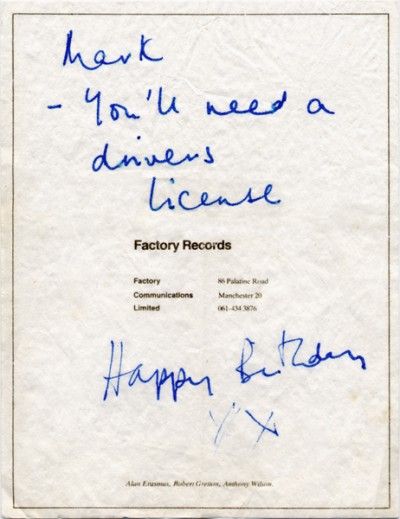 Mark
- You'll need a
drivers
license
Factory Records
Factory 86 Palatine Road
Communications Manchester 20
Limited 061-434 3876
Happy Birthday
XX
Alan Erasmus, Robert Gretton, Anthony Wilson.